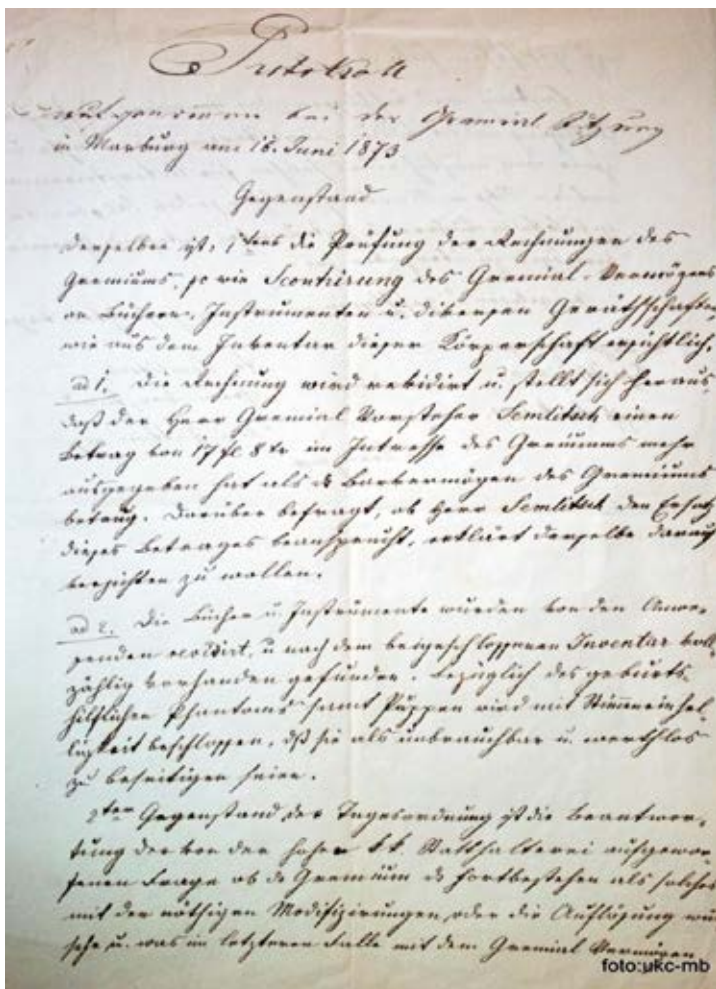 Protokoll
aufgenommen bei der Gremial Sitzung
in Marburg am 16. Juni 1873
Gegenstand
derselben ist, 1tens die Prüfung der Rechnungen des
Gremiums, so wie Scontrirung des Gremial-Vermögens
an Büchern, Instrumenten u. diversen Geräthschaften,
wie aus dem Inventar dieser Körperschaft ersichtlich.
ad 1. Die Rechnung wird revidirt u. stellt sich heraus,
daß der Herr Gremial Vorsteher Semlitsch einen
Betrag von 17 fl 8 kr im Intresse des Gremiums mehr
ausgegeben hat als das Barvermögen des Gremiums
betrug. Darüber befragt, ob Herr Semlitsch den Ersatz
dieses Betrages beansprucht, erklärt derselbe darauf
verzichten zu wollen.
ad 2. Die Bücher u. Instrumente wurden von den Anwe-
senden revidirt, u nach dem beigeschlossenen Inventar voll-
zählig vorhanden gefunden. Bezüglich des geburts-
hilflichen Phantoms samt Puppen wird mit Stimmeneinhel-
ligkeit beschlossen, dß sie als unbrauchbar u. werthlos
zu beseitigen seien.
2ter Gegenstand der Tagesordnung ist die Beantwor-
tung der von der hohen k.k. Statthalterei aufgewor-
fenen Frage ob das Gremium das Fortbestehen als solches
mit den nöthigen Modifizirungen, oder die Auflösung wün
sche u. was im letzteren Falle mit dem Gremial Vermögen
foto:ukc-mb